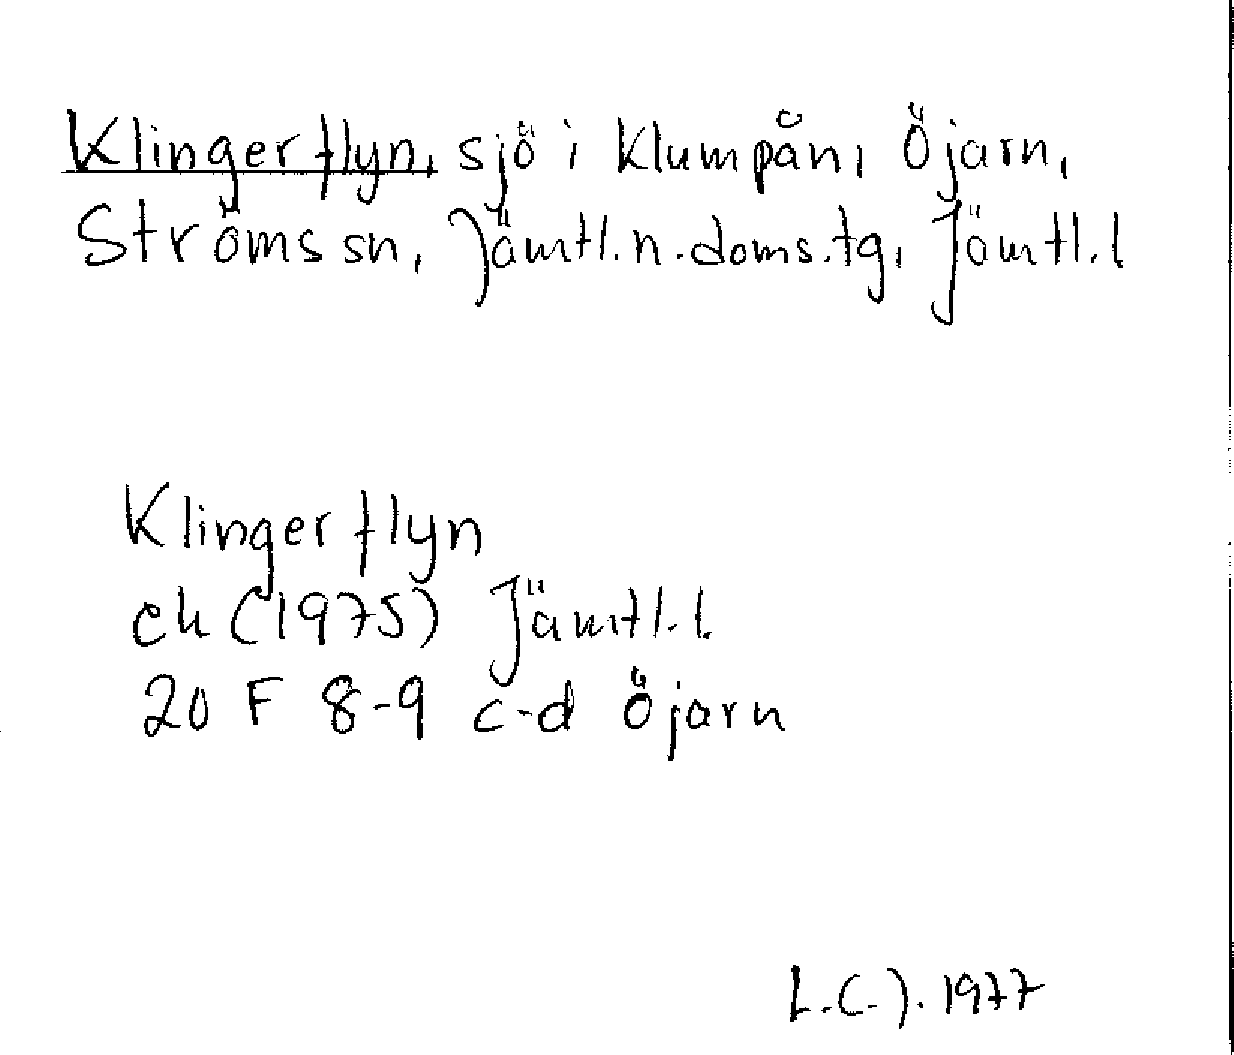 Klingerflyn, sjö i Klumpån, Öjarn,
Ströms sn, Jämtl.n.doms.tg, Jämtl.l
Klingerflyn
ek (1975) Jämtl.l.
20 F 8-9 c-d Öjarn
L.C.J. 1977